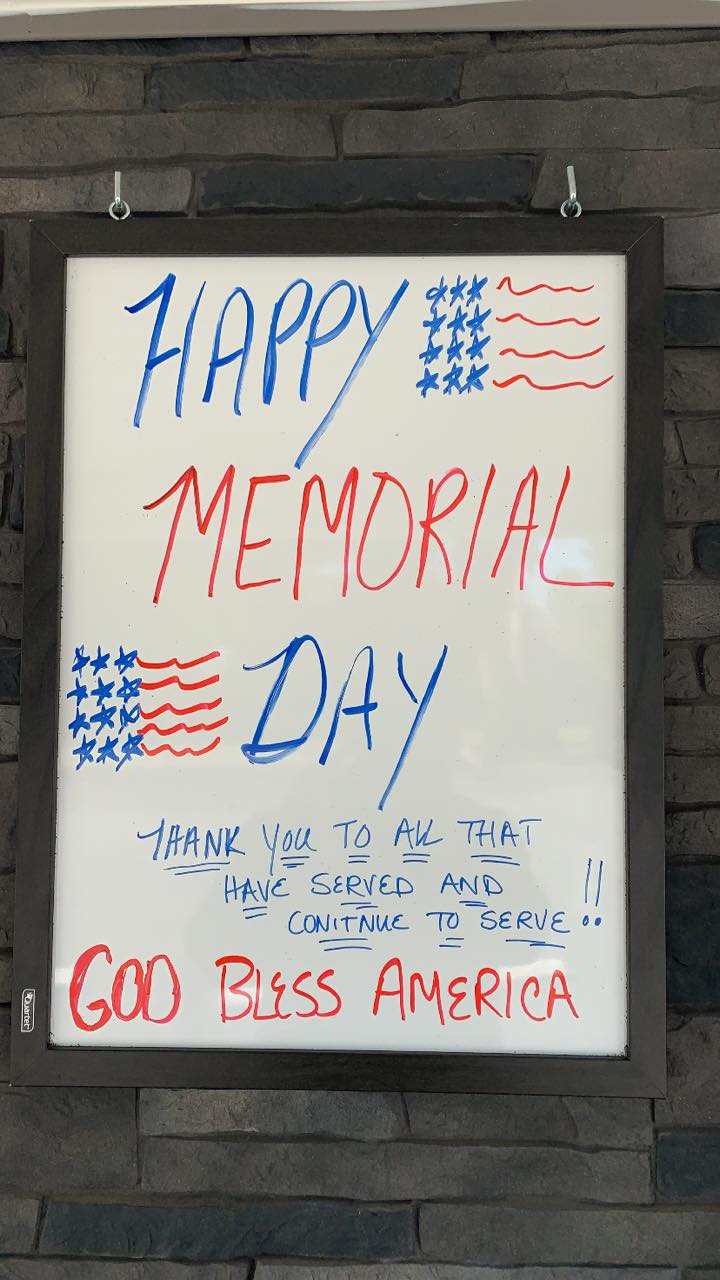 HAPPY
MEMORIAL
DAY
THANK YOU TO ALL THAT
HAVE SERVED AND
CONITNUE TO SERVE!!
GOD BLESS AMERICA
Quartet